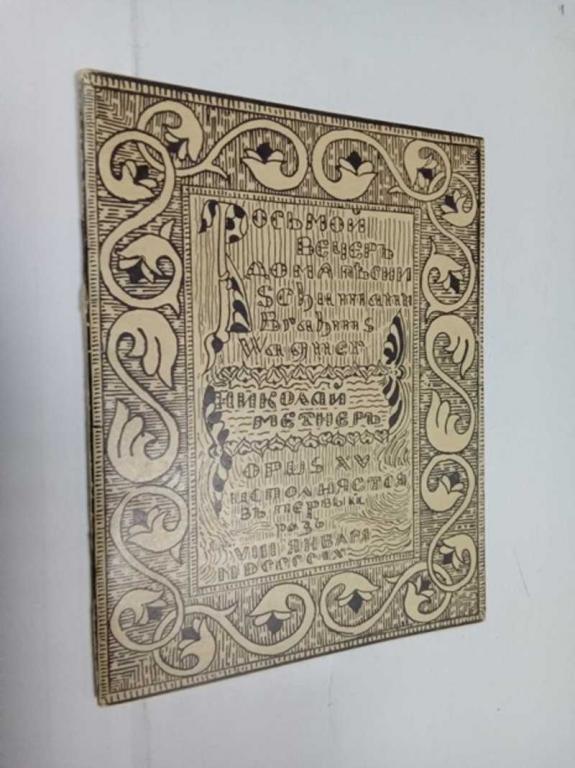 ВОСЬМОЙ
ВЕЧЕРЪ
ДОМА ПѢСНИ
Schumann
Brahms
Wagner
НИКОЛАЙ
МЕТНЕРЪ
OPUS XV
ИСПОЛНЯЕТСЯ
ВЪ ПЕРВЫЙ
РАЗЪ
VIII ЯНВАРЯ